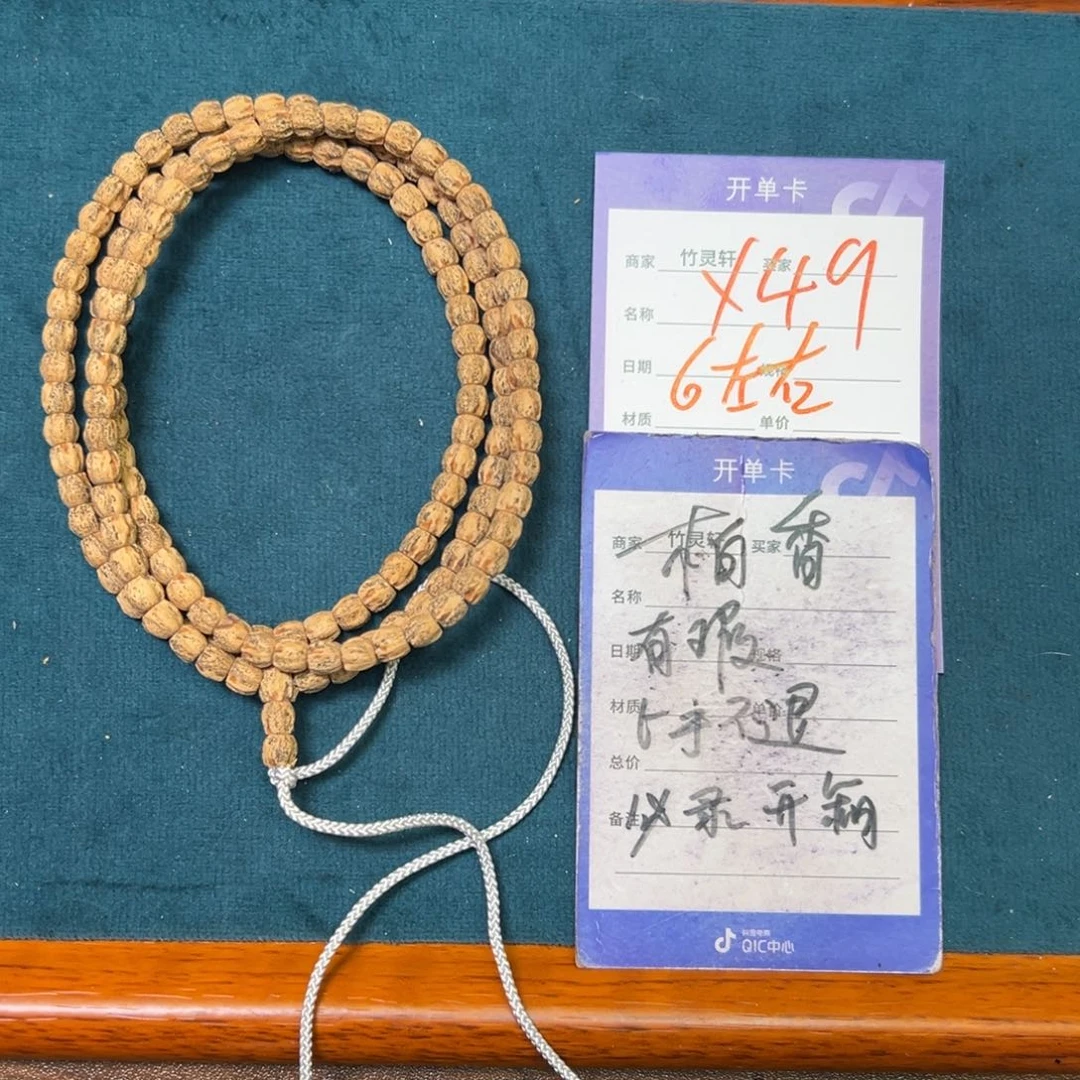 开单卡
商家 竹灵轩 买家
X49
名称
6左右
日期 规格
材质 单价
开单卡
商家 竹灵轩 买家
柏香
名称
有瑕
日期 规格
材质 单价
上手不退
总价
必录开箱
备注
抖音电商
QIC中心